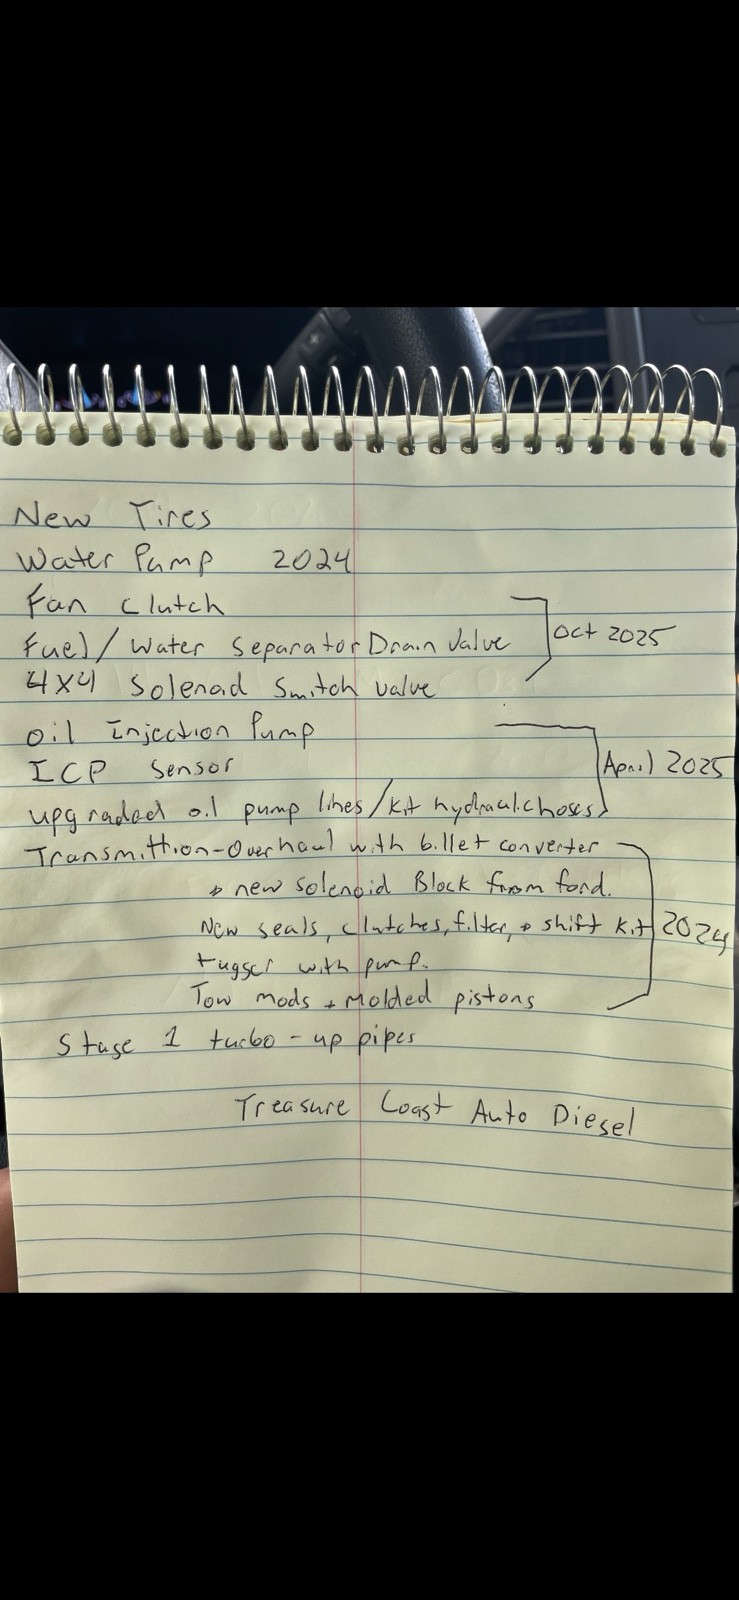 New Tires
Water Pump 2024
Fan Clutch
Fuel/Water Separator Drain Valve Oct 2025
4x4 Solenoid Switch valve
Oil Injection Pump
ICP Sensor April 2025
upgraded oil pump lines/kit hydraulic hoses
Transmittion-Overhaul with billet converter
+ new solenoid Block from ford.
New seals, clutches, filter, + shift kit 2024
with pump.
Tow mods + Molded pistons
Stage 1 turbo - up pipes
Treasure Coast Auto Diesel